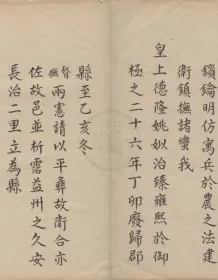 鎖鑰明仿寓兵於農之法建
衛鎮撫諸蠻我
皇上德隆姚姒治臻雍熙於御
極之二十六年丁卯廢歸郡
縣至乙亥冬
督撫兩憲請以平彝故衛合亦
佐故邑並析霑益州之久安
長治二里立為縣